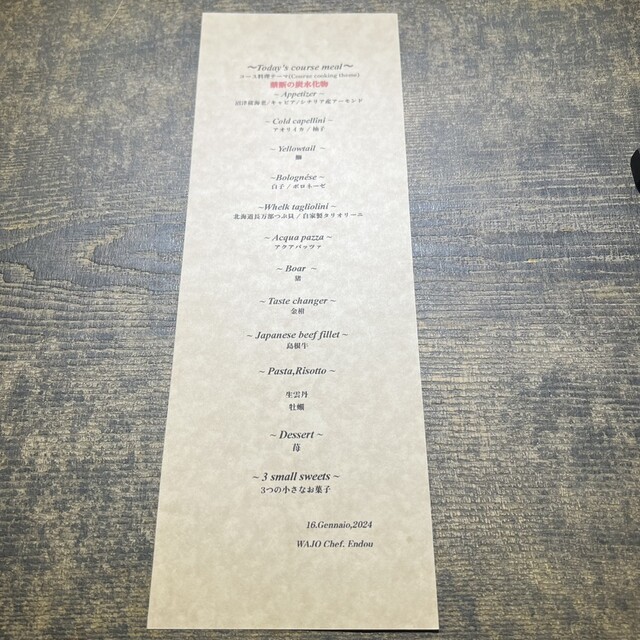 ～Today's course meal～
コース料理テーマ(Course cooking theme)
禁断の炭水化物
~ Appetizer ~
沼津抜海老/キャビア/シチリア産アーモンド
~ Cold capellini ~
アオリイカ / 柚子
~ Yellowtail ~
鰤
~Bolognése ~
白子 / ボロネーゼ
~Whelk tagliolini ~
北海道長万部つぶ貝 / 自家製タリオリーニ
~ Acqua pazza ~
アクアパッツァ
~ Boar ~
猪
~ Taste changer ~
金柑
~ Japanese beef fillet ~
島根牛
~ Pasta,Risotto ~
生雲丹
牡蠣
~ Dessert ~
苺
~ 3 small sweets ~
3つの小さなお菓子
16.Gennaio,2024
WAJO Chef. Endou